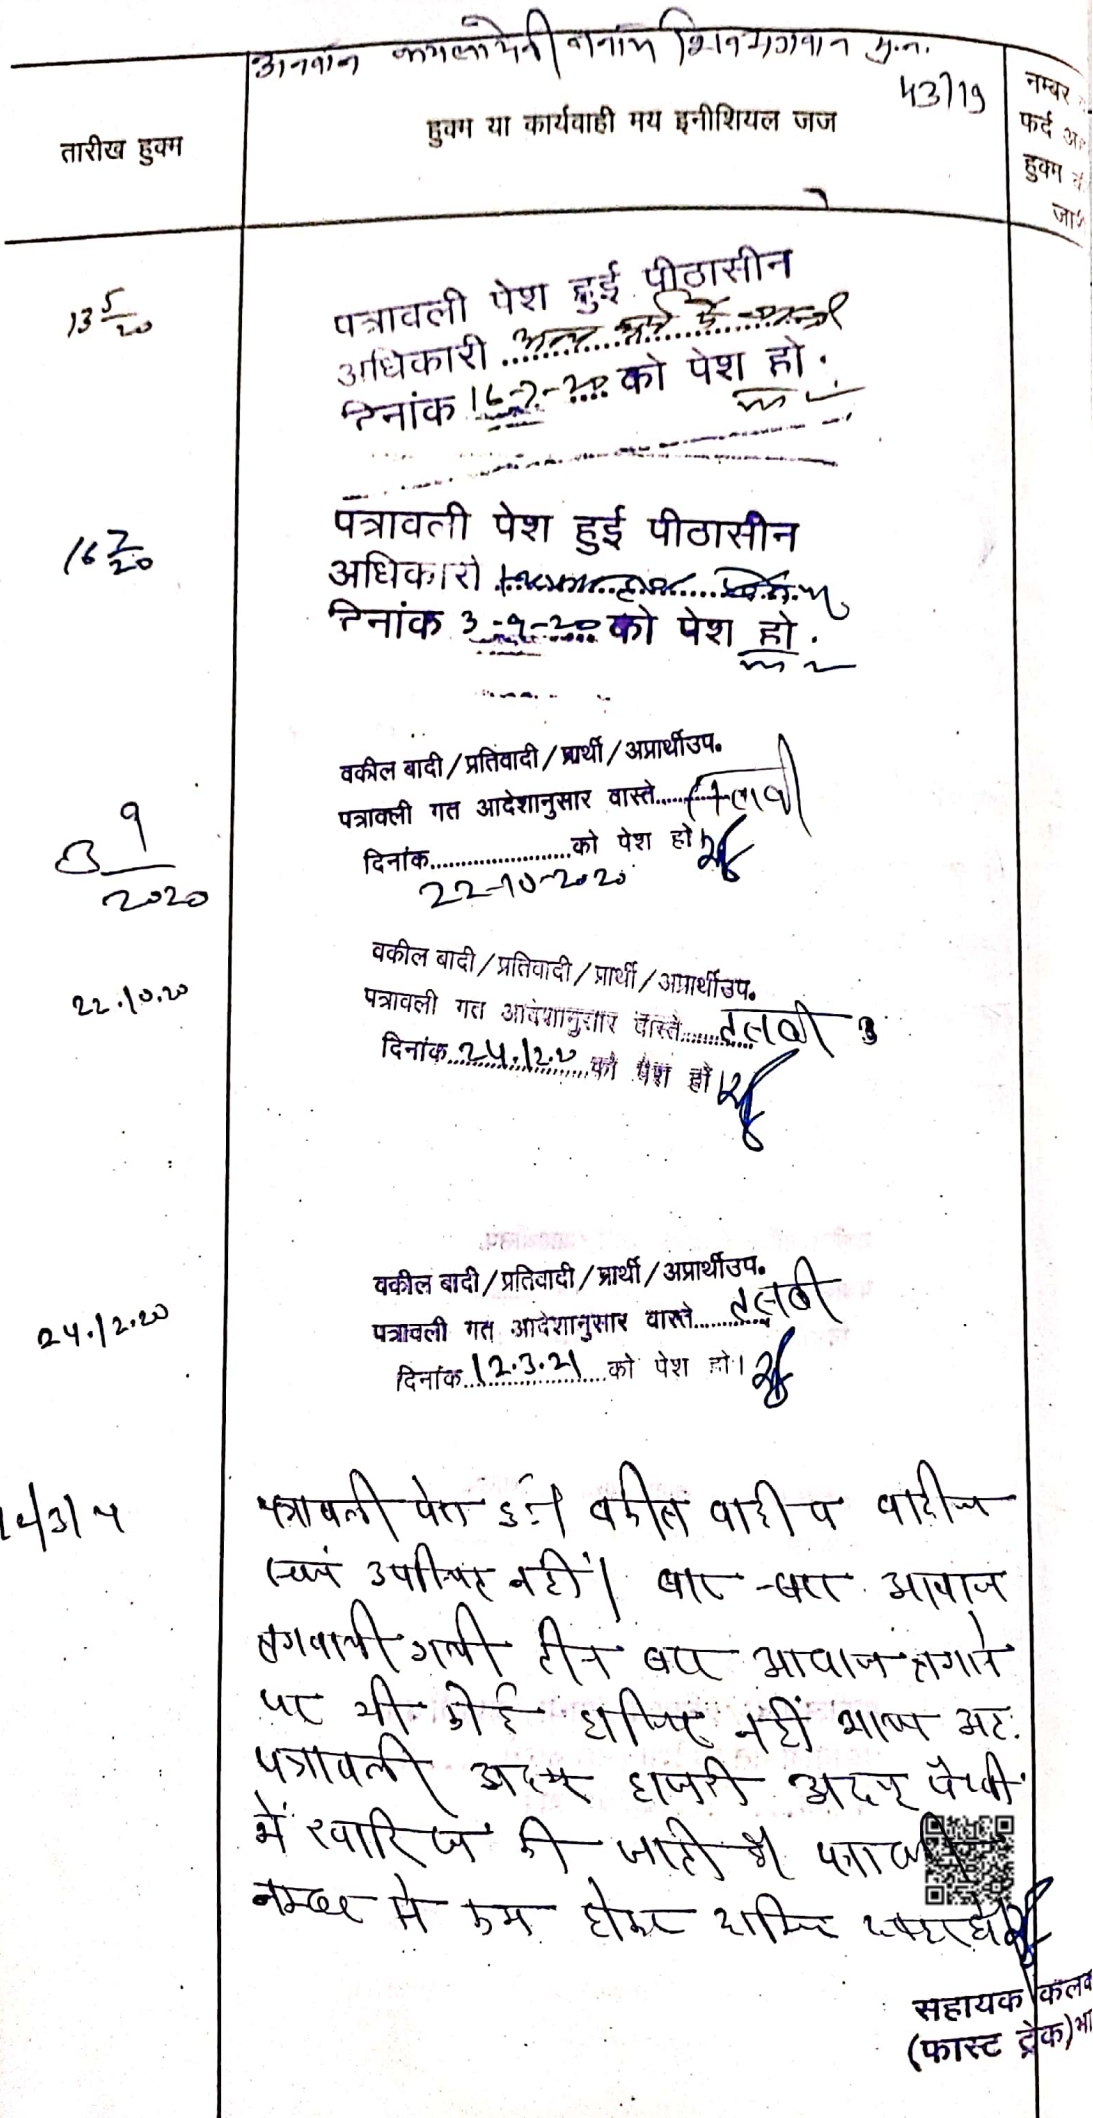 अनवान कमलादेवी बनाम शिवभगवान मु.न.
43/19
तारीख हुक्म
हुक्म या कार्यवाही मय इनीशियल जज
नम्बर
फर्द
हुक्म
13 5/20
पत्रावली पेश हुई पीठासीन
अधिकारी अन्य कार्य में व्यस्त
दिनांक 16-7-20 को पेश हो.
16 7/20
पत्रावली पेश हुई पीठासीन
अधिकारी
दिनांक 3-9-20 को पेश हो.
3 9/2020
वकील वादी/प्रतिवादी/प्रार्थी/अप्रार्थीउप.
पत्रावली गत आदेशानुसार वास्ते तलबी
दिनांक....................को पेश हो।
22-10-2020
22.10.20
वकील वादी/प्रतिवादी/प्रार्थी/अप्रार्थीउप.
पत्रावली गत आदेशानुसार वास्ते तलबी
दिनांक 24.12.20 को पेश हो।
24.12.20
वकील वादी/प्रतिवादी/प्रार्थी/अप्रार्थीउप.
पत्रावली गत आदेशानुसार वास्ते तलबी
दिनांक 12.3.21 को पेश हो।
पत्रावली पेश हुई। वकील वादी व वादीगण
स्वयं उपस्थित नहीं। बार-बार आवाज
लगवायी गयी तीन बार आवाज लगाने
पर भी कोई हाजिर नहीं आया अतः
पत्रावली अदम हाजरी अदम पैरवी
में खारिज की जाती है। पत्रावली
नम्बर से कम होकर दाखिल दफ्तर हो।
सहायक कलक
(फास्ट ट्रेक)